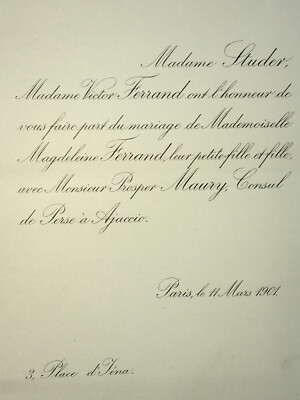 Madame Studer,
Madame Victor Ferrand ont l'honneur de
vous faire part du mariage de Mademoiselle
Magdeleine Ferrand, leur petite fille et fille,
avec Monsieur Prosper Maury, Consul
de Perse à Ajaccio.
Paris, le 11 Mars 1901.
3, Place d'Iéna.